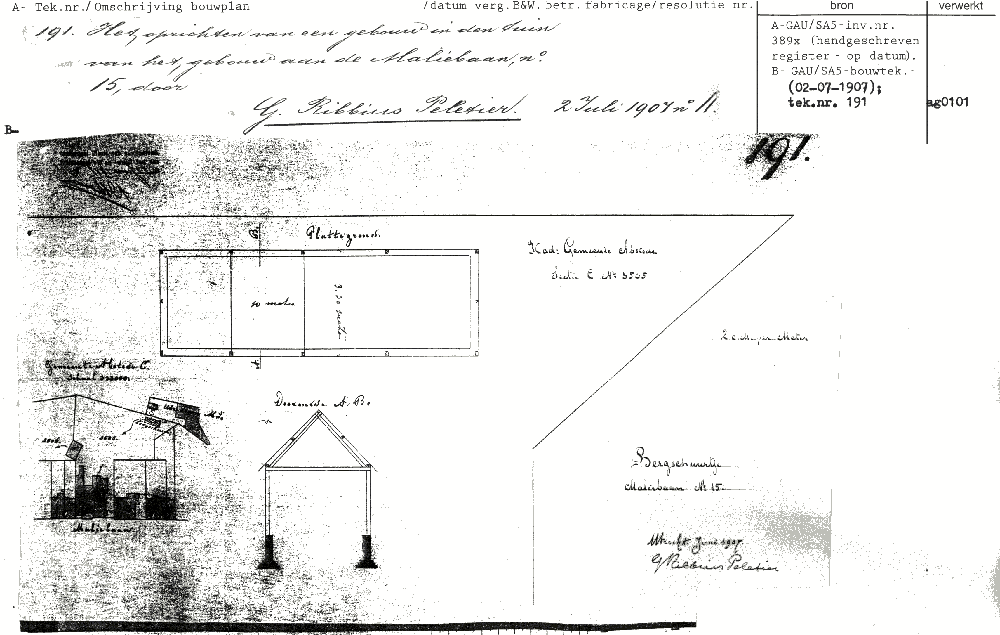 A- Tek.nr./Omschrijving bouwplan
/datum verg.B&W.betr.fabricage/resolutie nr.
bron
verwerkt
191. Het oprichten van een gebouw in den tuin
van het gebouw aan de Maliebaan, no.
15, door
G. Ribbius Peletier. 2 Juli 1907 no 11
A-GAU/SA5-inv.nr.
389x (handgeschreven
register - op datum).
B- GAU/SA5-bouwtek.-
(02-07-1907);
tek.nr. 191
ag0101
B-
191.
Plattegrond.
Kad: Gemeente Abstede
Sectie C No
10 meter
3.50 meter
2 c.M. per Meter
Gemeente Abstede C.
Doorsnede A.B.
Bergschuurtje
Maliebaan No 15
Maliebaan
Utrecht Juni 1907.
G Ribbius Peletier